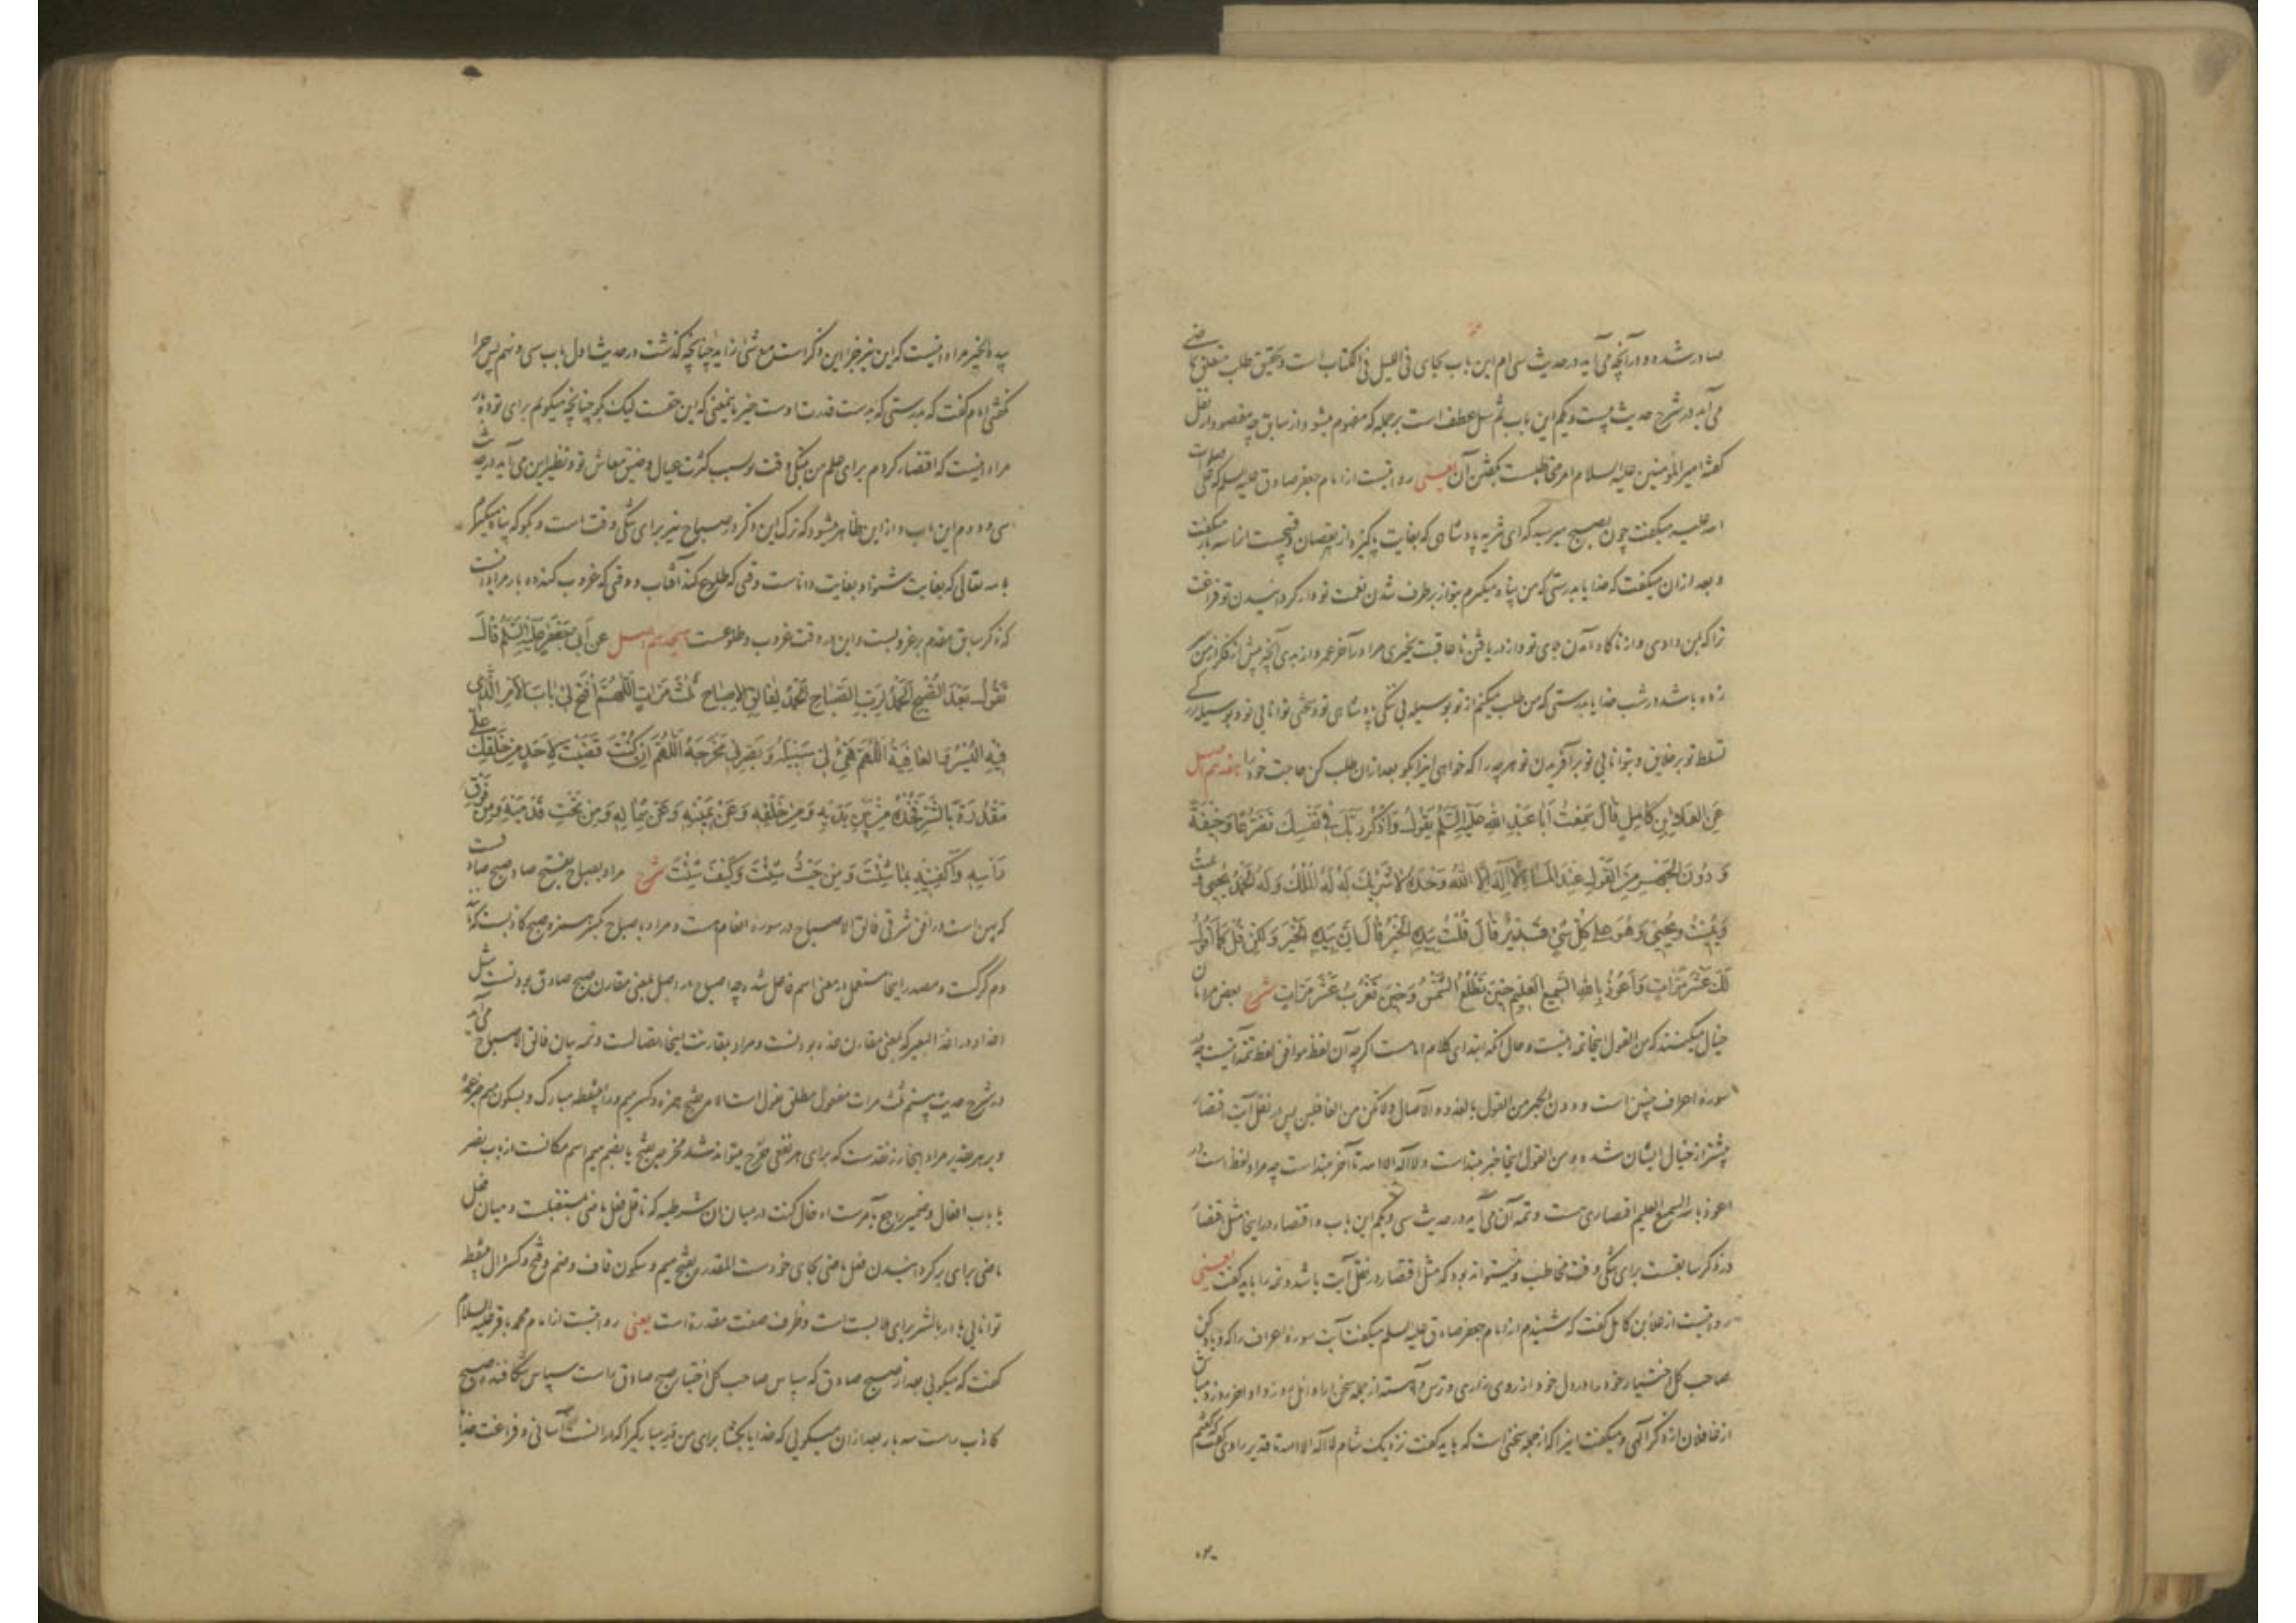 صادر شده و در آنچه می آید در حدیث سی ام این باب بجای فی اللیل فی الکتاب است و تحقیق طلب متعلق
می آید در شرح حدیث بیست و یکم این باب ثم سل عطف است بر جمله که مفهوم میشود از سابق چه مقصود از نقل
گفته امیر المؤمنین علیه السلام امر مخاطبست بگفتن آن یعنی روایتست از امام جعفر صادق علیه السلم که علی صلوات
الله علیه میگفت چون بصبح میرسید که ای
و بعد از ان میگفت که خدایا بدرستی که من پناه میگیرم بتو از بر طرف شدن نعمت تو و از گردانیدن تو فراغت
ترا که بمن دادی و از ناگاه آمدن
زده باشد در شب خدایا بدرستی که من طلب میکنم از تو بوسیله بی ننگی پادشاهی تو و سختی توانایی تو و بوسیله
تسلط تو بر خلایق و بتوانایی تو بر آفریدن تو هر چه را که خواهی اینرا بگو بعد از ان طلب کن حاجت خود را هفدهم اصل
عَنِ العَلاءِ بنِ كَامِلٍ قَالَ سَمِعْتُ اَبَا عَبْدِ اللهِ عَلَيْهِ السَّلَمُ يَقُولُ وَاذْكُرْ رَبَّكَ فِي نَفْسِكَ تَضَرُّعًا وَخِيفَةً
وَدُونَ الْجَهْرِ مِنَ الْقَوْلِ عِنْدَ الْمَسَاءِ لَا اِلَهَ اِلَّا اللهُ وَحْدَهُ لَا شَرِيكَ لَهُ لَهُ الْمُلْكُ وَلَهُ الْحَمْدُ يُحْيِي
وَيُمِيتُ وَيُحْيِي وَهُوَ عَلَى كُلِّ شَيْءٍ قَدِيرٌ قَالَ قُلْتُ بِيَدِهِ الْخَيْرُ قَالَ اِنَّ بِيَدِهِ الْخَيْرَ وَلَكِنْ قُلْ كَمَا اَقُولُ
لَكَ عَشْرَ مَرَّاتٍ وَاَعُوذُ بِاللهِ السَّمِيعِ الْعَلِيمِ حِينَ تَطْلُعُ الشَّمْسُ وَحِينَ تَغْرُبُ عَشْرَ مَرَّاتٍ شرح بعض مردمان
خیال میکنند که من القول اینجا تتمه آیتست و حال آنکه ابتدای کلام امامست اگرچه آن لفظ موافق لفظ تتمه آیتست چه
سوره اعراف چنین است و دون الجهر من القول بالغدو والآصال ولا تکن من الغافلین پس در نقل آیت اقتصار
بیشتر از خیال ایشان شده و من القول اینجا خبر مبتداست و لا اله الا الله تا آخر مبتداست چه مراد لفظ است در
اعوذ بالله السمیع العلیم اقتصاری هست و تتمه آن می آید در حدیث سی و یکم این باب و اقتصار در اینجا مثل اقتصار
در ذکر سابقست برای تنگی وقت مخاطب و میتواند بود که مثل اقتصار در نقل آیت باشد و تتمه را باید گفت یعنی
روایتست از علاء بن کامل گفت که شنیدم از امام جعفر صادق علیه السلم میگفت آیت سوره اعراف را که و یاد کن
صاحب کل اختیار خود را در دل خود از روی زاری و ترس و آهسته از جمله سخن در اوایل روز و اواخر روز و مباش
از غافلان از ذکر الهی و میگفت اینرا که از جمله سخنی است که باید گفت نزدیک شام لا اله الا الله تا قدیر راوی گفت که گفتم
بیده الخیر مراد اینست که این نیز جزء این ذکر است مع شیء زاید چنانچه گذشت در حدیث اول باب سی و نهم پس چرا
نگفتی امام گفت که بدرستی که بدست قدرت اوست خیر باینمعنی که این حقست لیک بگو چنانچه میگویم برای تو ده بار
مراد اینست که اقتصار کردم برای علم من بتنگی وقت تو بسبب کثرت عیال و ضیق معاش تو و نظیر این می آید در حدیث
سی و دوم این باب و از این ظاهر میشود که ترک این ذکر در صباح نیز برای تنگی وقت است و بگو که پناه میگیرم
بالله تعالی که بغایت شنوا و بغایت داناست وقتی که طلوع کند آفتاب و وقتی که غروب کند ده بار مراد اینست
که ذکر سابق مقدم بر غروبست و این در وقت غروب و طلوعست هیجدهم اصل عَنْ اَبِي جَعْفَرٍ عَلَيْهِ السَّلَمُ قَالَ
تَقُولُ بَعْدَ الصُّبْحِ الْحَمْدُ لِرَبِّ الصَّبَاحِ الْحَمْدُ لِفَالِقِ الْاِصْبَاحِ ثَلَثَ مَرَّاتٍ اَللّهُمَّ افْتَحْ لِي بَابَ الْاَمْرِ الَّذِي
فِيهِ الْيُسْرُ وَالْعَافِيَةُ اَللّهُمَّ هَيِّئْ لِي سَبِيلَهُ وَبَصِّرْنِي مَخْرَجَهُ اَللّهُمَّ اِنْ كُنْتَ قَضَيْتَ لِاَحَدٍ مِنْ خَلْقِكَ عَلَيَّ
مَقْدُرَةً بِالشَّرِّ فَخُذْهُ مِنْ بَيْنِ يَدَيْهِ وَمِنْ خَلْفِهِ وَعَنْ يَمِينِهِ وَعَنْ شِمَالِهِ وَمِنْ تَحْتِ قَدَمَيْهِ وَمِنْ فَوْقِ
رَأْسِهِ وَاكْفِنِيهِ بِمَا شِئْتَ وَمِنْ حَيْثُ شِئْتَ وَكَيْفَ شِئْتَ شرح مراد بصباح بفتح صاد صبح صادقست
که پهن است در افق شرقی فالق الاصباح در سوره انعام هست و مراد باصباح بکسر همزه صبح کاذبست که
دم گرگست و مصدر اینجا مستعمل در معنی اسم فاعل شده چه اصباح در اصل بمعنی مقارن صبح صادق بودنست مثل
اغداد در اغد البعیر که بمعنی مقارن غده بودنست و مراد بمقارنت اینجا اتصالست و تتمه بیان فالق الاصباح می آید
در شرح حدیث بیستم ثلث مرات مفعول مطلق تقول است
و بر هر تقدیر مراد اینجا رزقیست که برای هر نفعی خرج میتواند شد مخرج بفتح یا بضم میم اسم مکانست از باب نصر
یا باب افعال و ضمیر راجع بامرست ادخال کنت در میان ان شرطیه که ناقل فعل ماضی بمستقبلست و میان فعل
ماضی برای برگردانیدن فعل ماضی بجای خودست المقدرة بفتح میم و سکون قاف و ضم و فتح و کسر دال بینقطه
توانایی باء در بالشر برای ملابست است و ظرف صفت مقدرة است یعنی روایتست از امام محمد باقر علیه السلام
گفت که میگویی بعد از صبح صادق که سپاس صاحب کل اختیار صبح صادق راست سپاس شکافنده صبح
کاذب راست سه بار بعد از ان میگویی که خدایا بگشا برای من در مبارکی را که در انست آسانی و فراغت خدایا